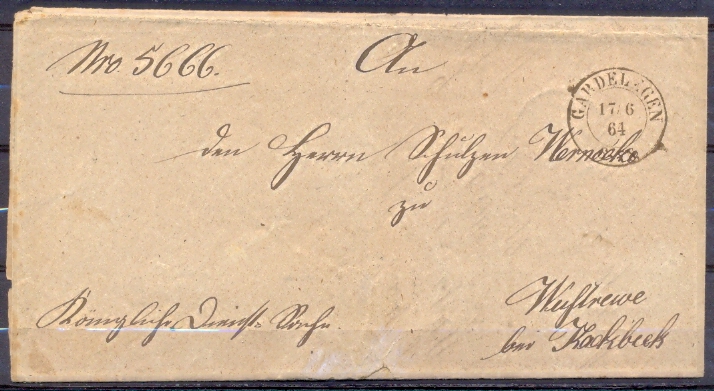 Nro. 5666.
An
GARDELEGEN
17/6
64
den Herrn Schulzen Wernecke
zu
Königliche Dienst-Sache.
Wustrewe
bei Kackbeck